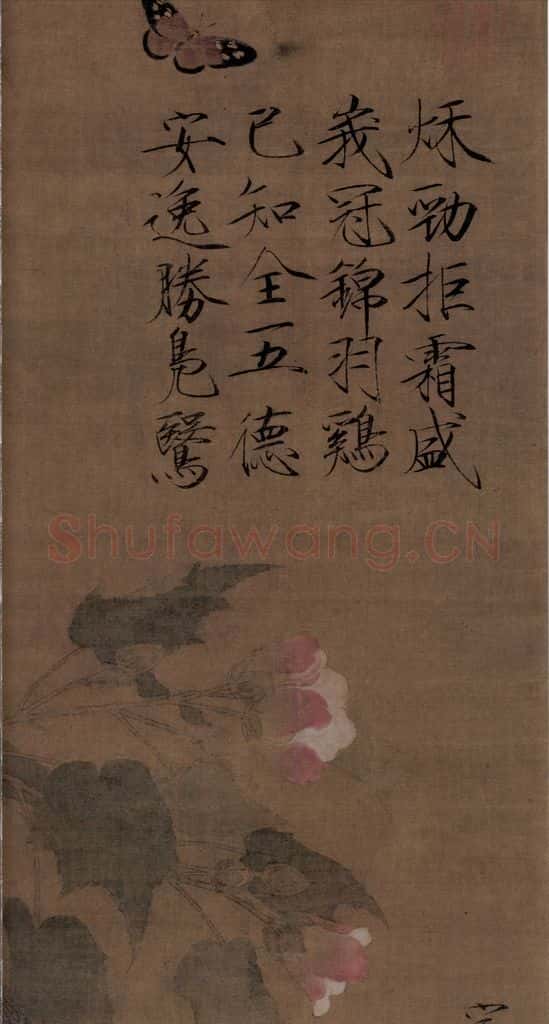 秌勁拒霜盛
峩冠錦羽鷄
已知全五德
安逸勝鳧鷖
Shufawang.CN